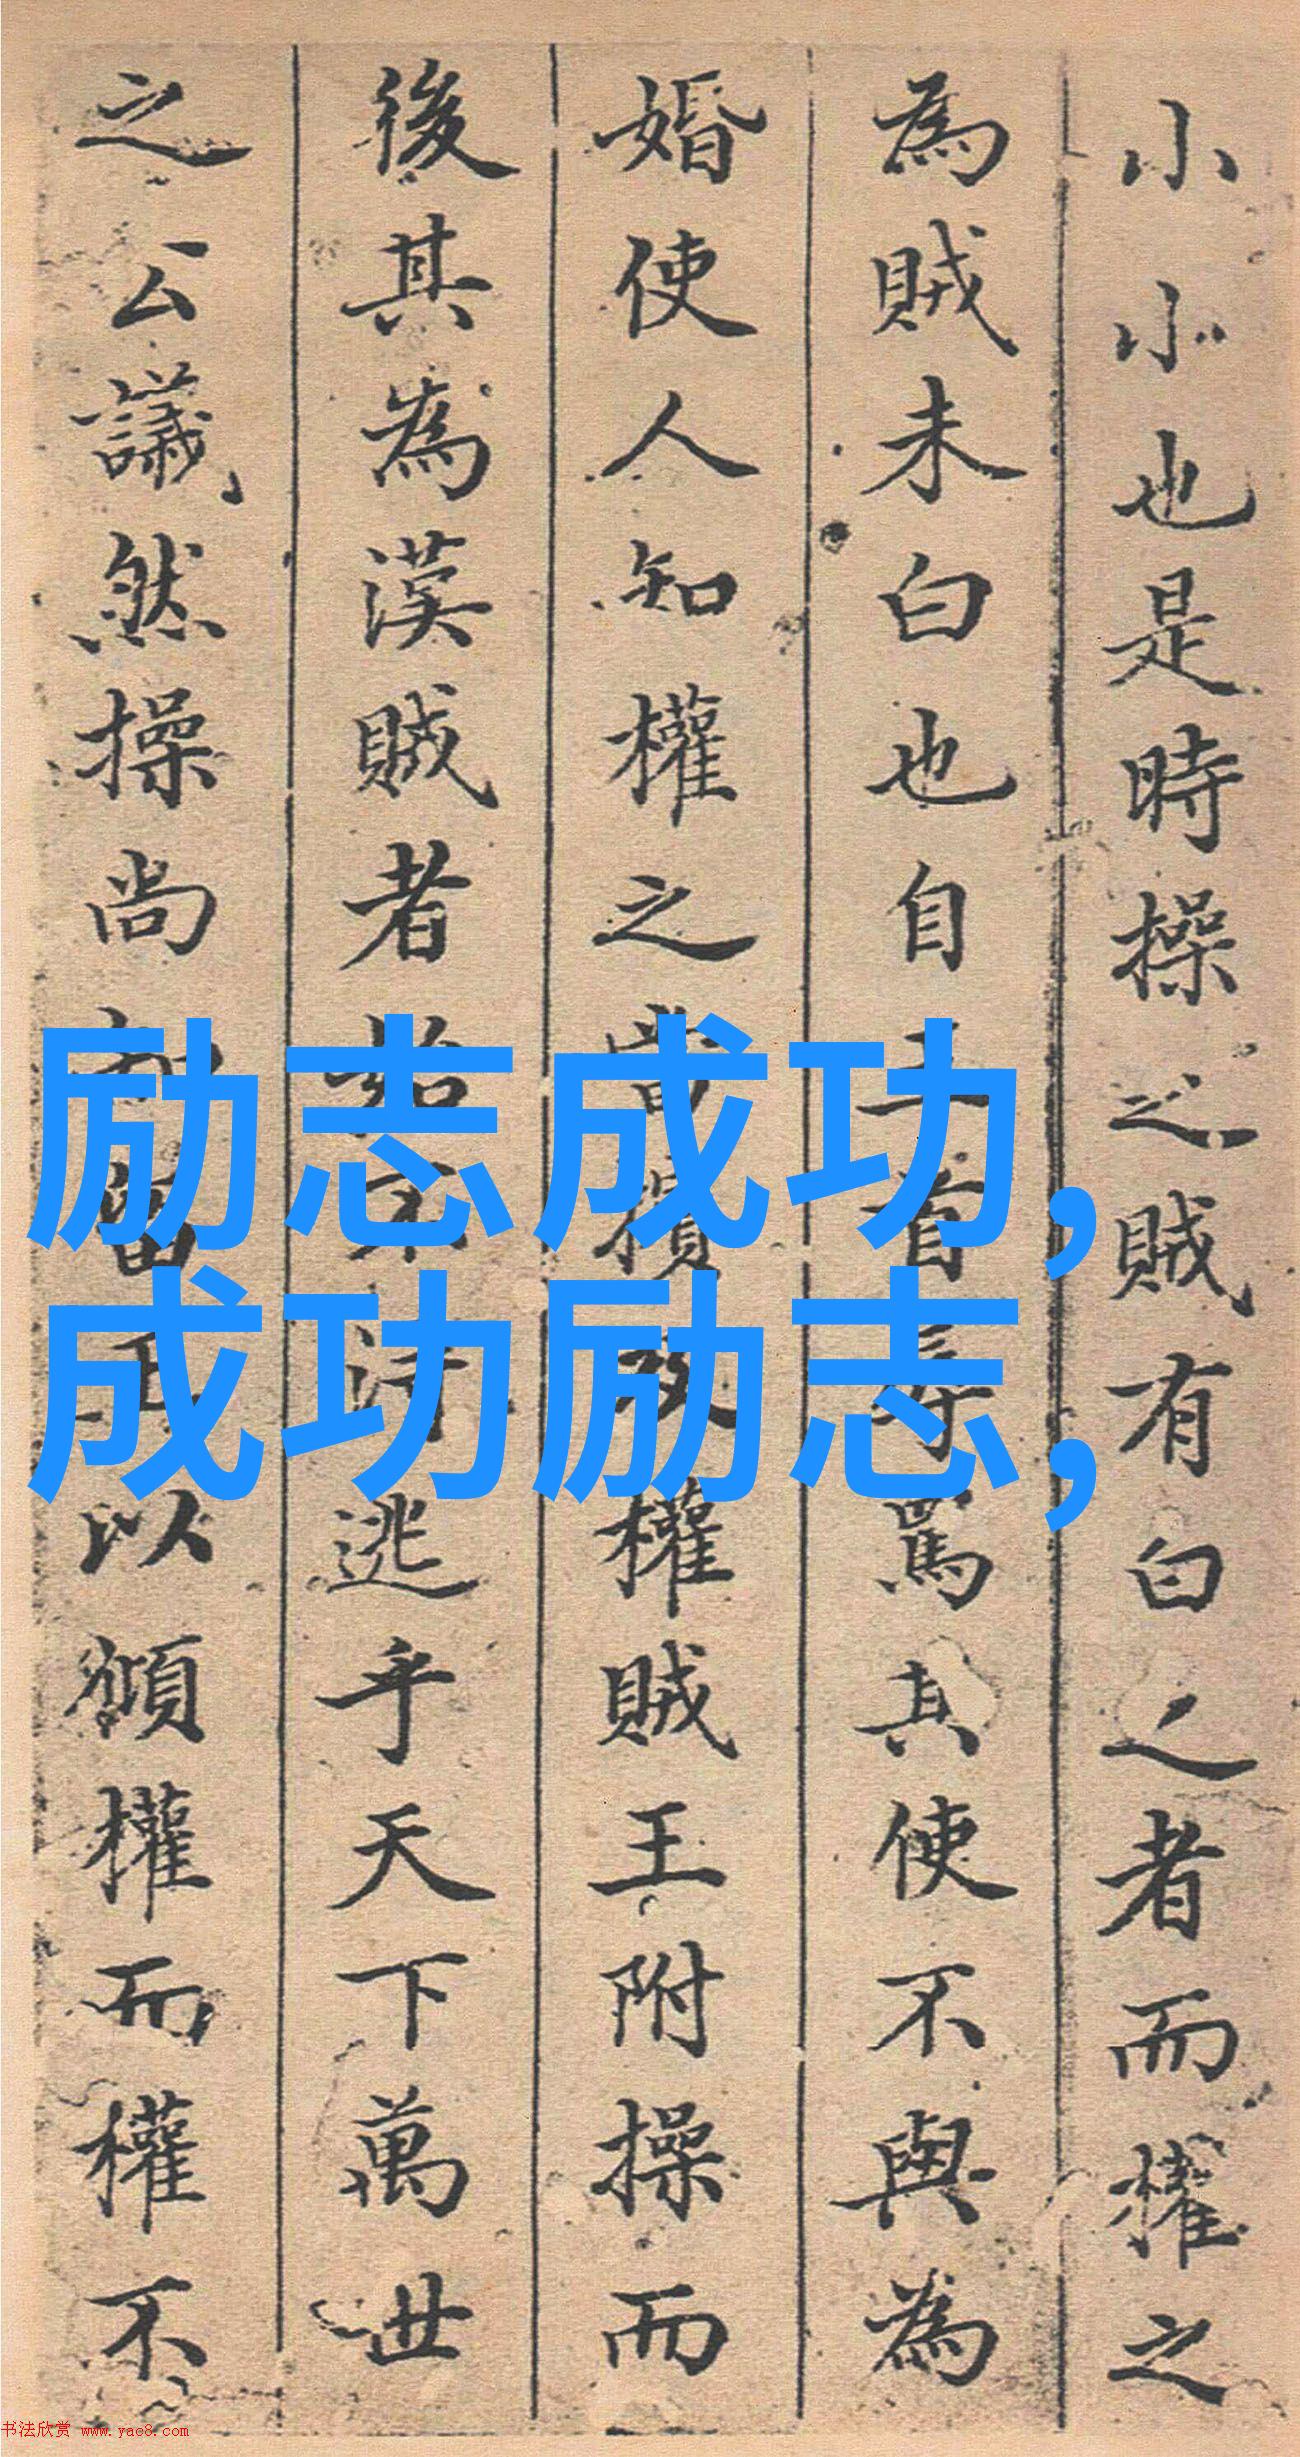 小小也是時操之賊有白之者而權之
為賊未白也自罵其使不與為
婚使人知權之權賊王附操而
後其為漢賊者逃乎天下萬世
之公議然操尚以權而權不
励志成功,
成功励志,
书法欣赏 www.yac8.com